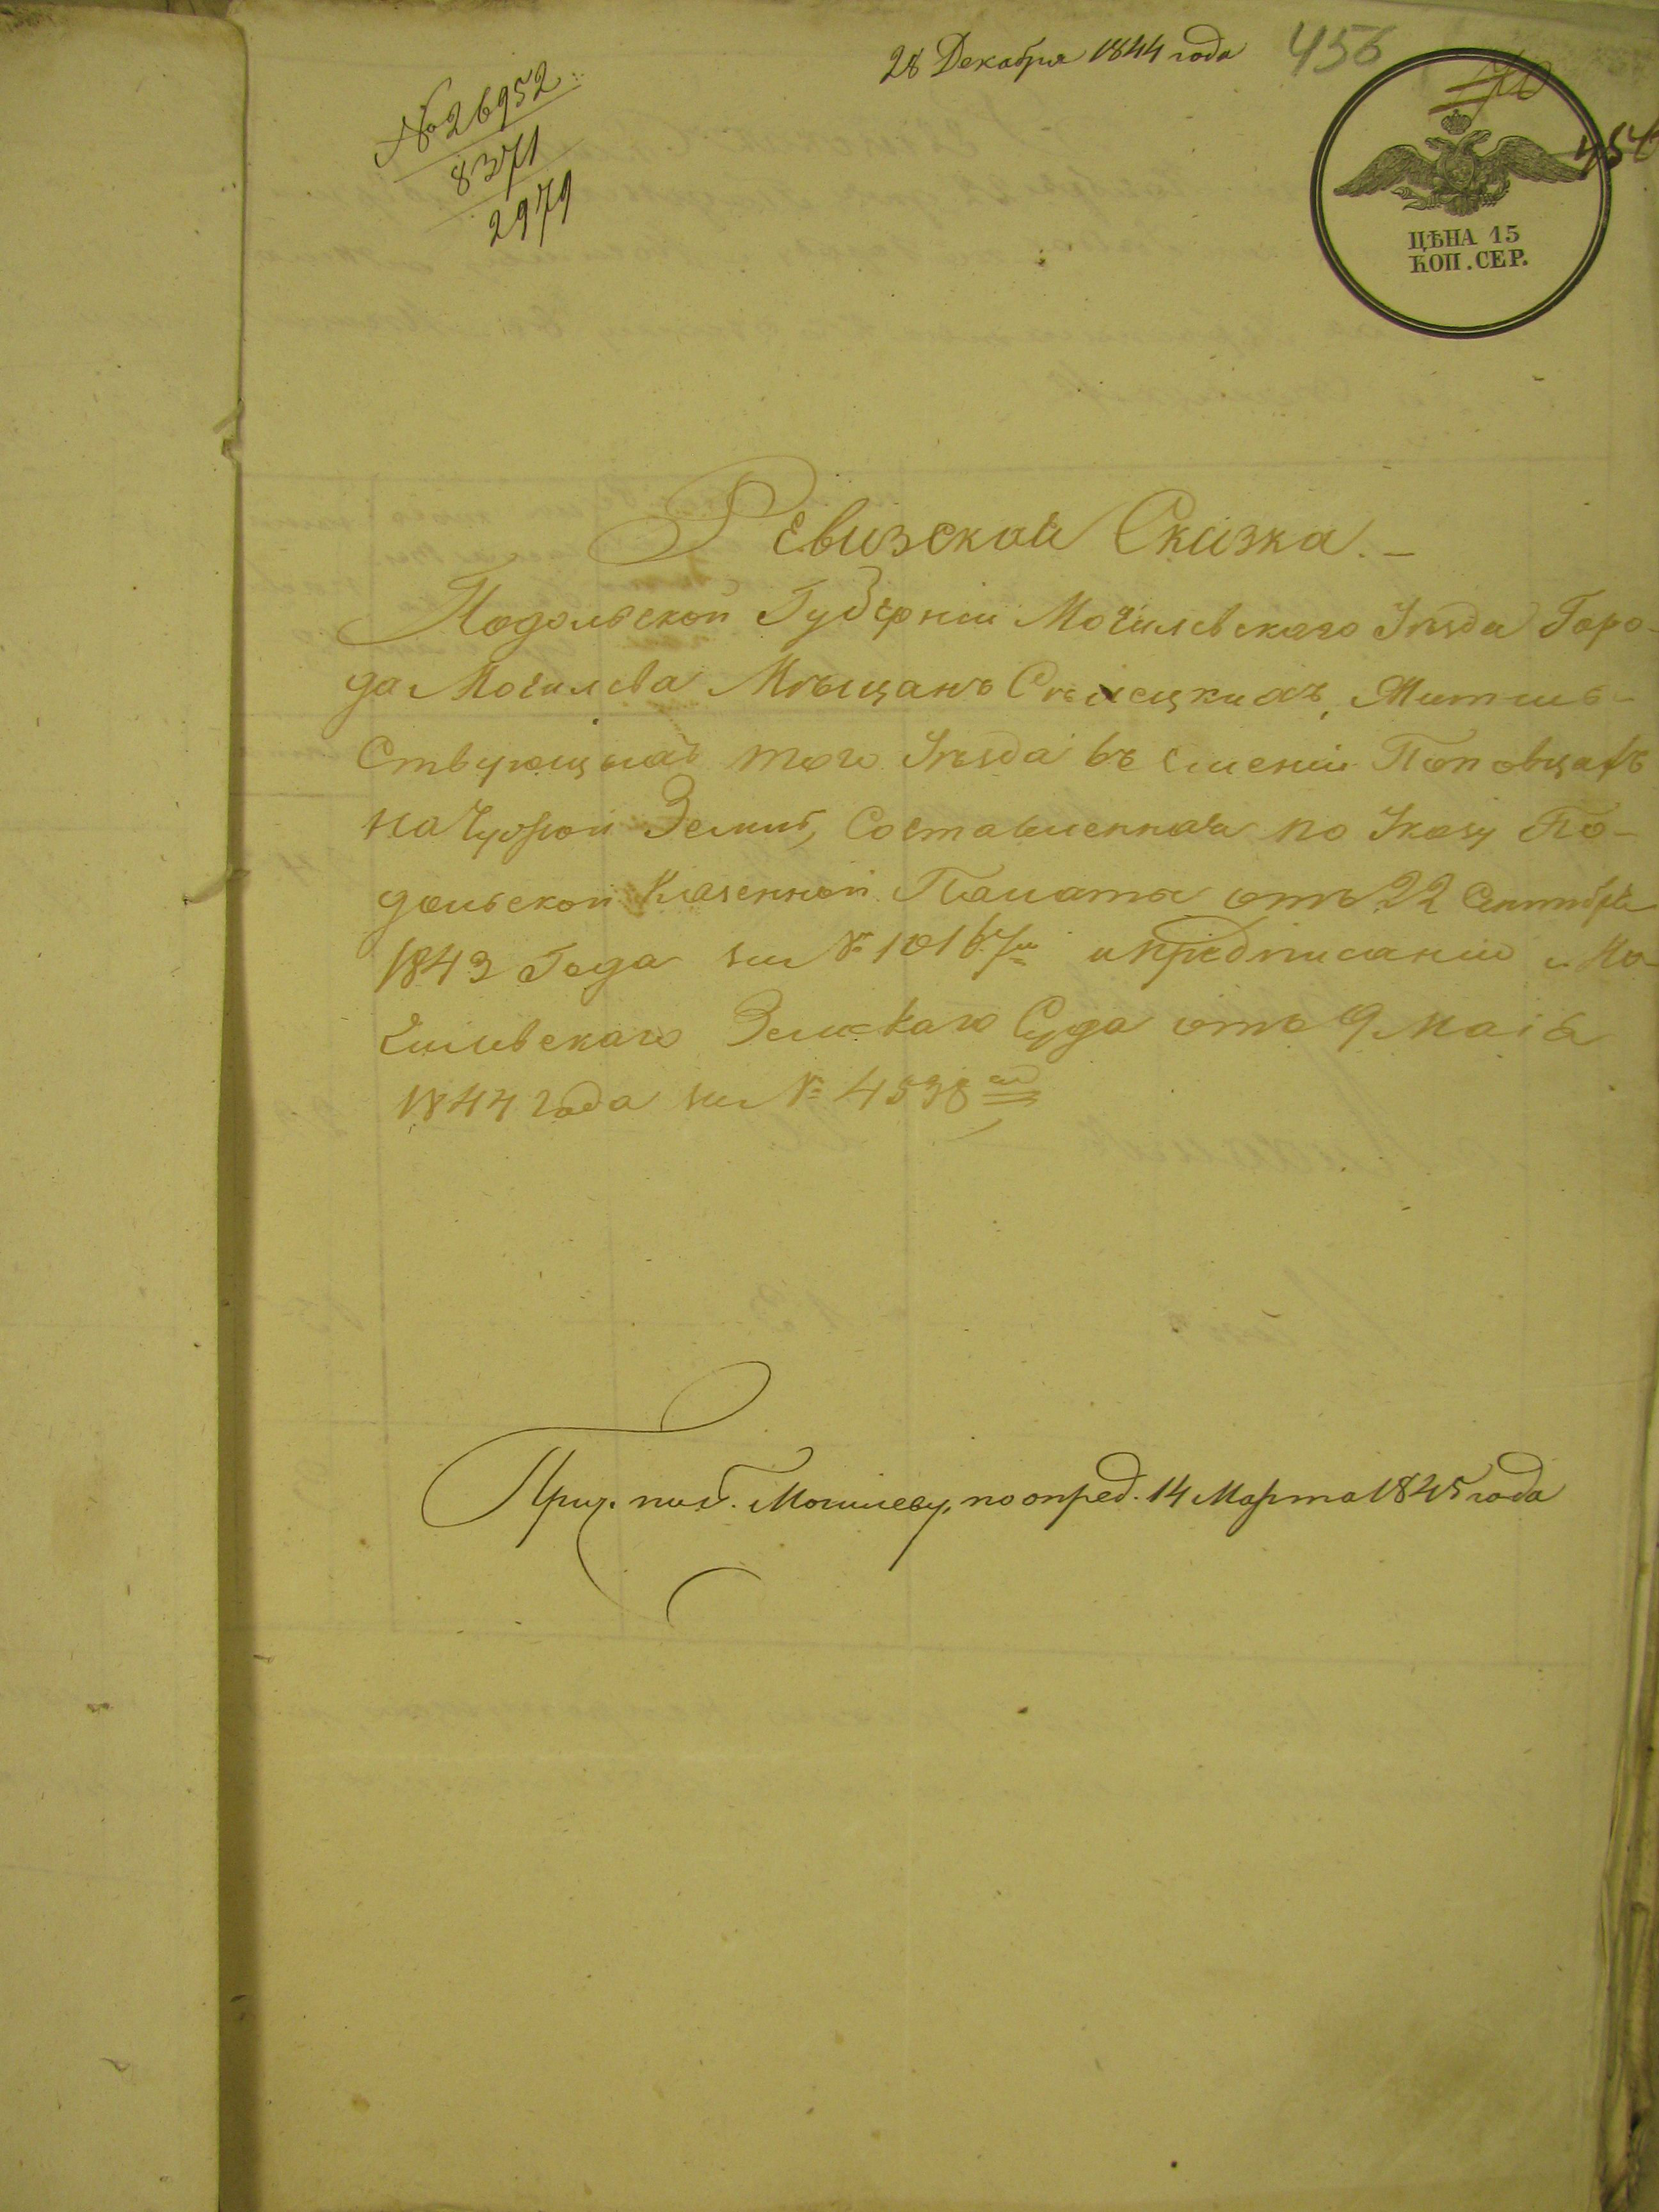 28 Декабря 1844 года
456
№ 26952
8371
2979
70
456
ЦѢНА 15
КОП. СЕР.
Ревизская Сказка. —
Подольской Губѣрніи Могилевскаго Уѣзда Горо-
да Могилева Мѣщанъ Сѣлецкихъ, Житель-
Ствующихъ того Уѣзда въ Имѣніи Поповцахъ
на Чужой Землѣ, Составленная по Указу По-
дольской Казенной Палаты отъ 22 Сентября
1843 Года за № 10167м и предписанію Мо-
гилевскаго Земскаго Суда отъ 9 Маія
1844 года за № 4538ой
Прич. по г. Могилеву, по опред. 14 Марта 1845 года